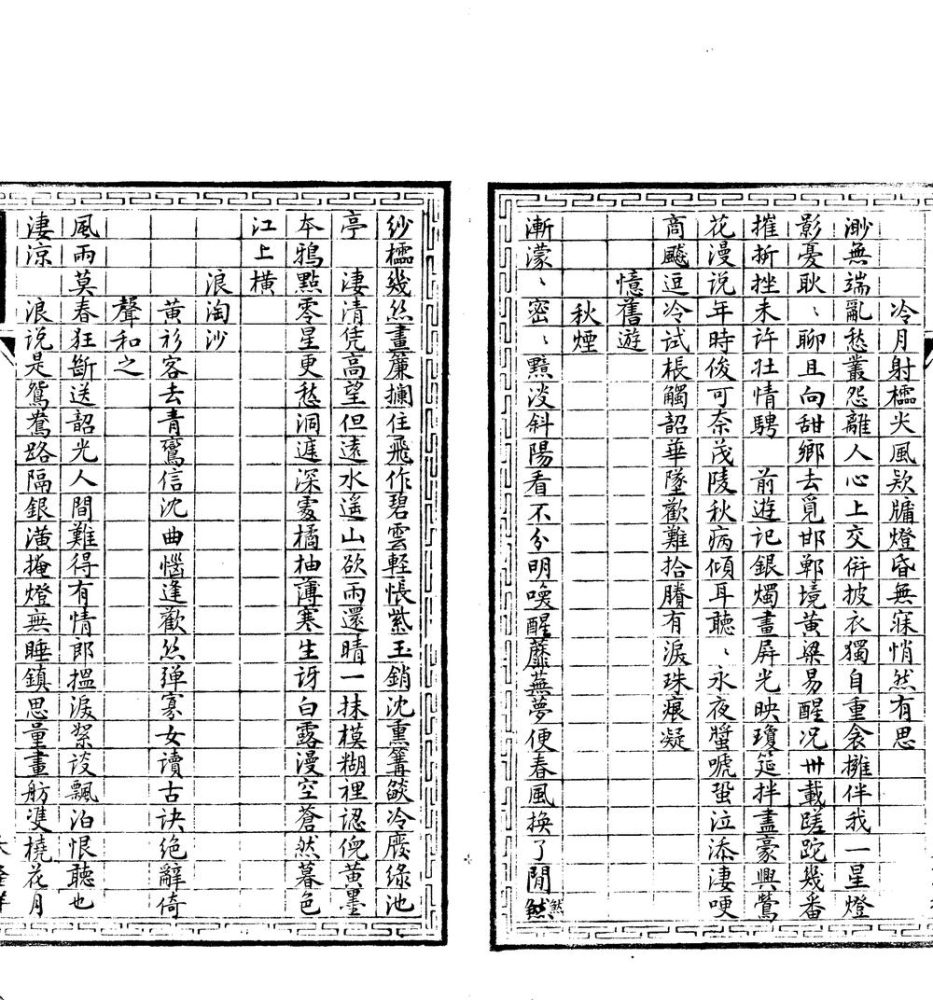 冷月射櫺尖風欵牖燈昏無寐悄然有思
渺無端亂愁叢怨離人心上交併披衣獨自重衾擁伴我一星燈
影憂耿、聊且向甜鄉去覓邯鄲境黃梁易醒况卅載蹉跎幾番
摧折挫未許壮情騁　前遊記銀燭畫屏光映瓊筵拌盡豪興鶯
花漫説年時俊可奈茂陵秋病傾耳聽、永夜螿嗁蛩泣添淒哽
商飈逗冷試棖觸韶華墜歡難拾賸有淚珠痕凝
憶舊遊
秋煙
漸濛、密、黯淡斜陽看不分明喚醒蘼蕪夢便春風換了閒
紗櫺幾絲畫簾攔住飛作碧雲輕悵紫玉銷沈熏篝燄冷廢綠池
亭　淒清凭高望但遠水遥山欲雨還晴一抹模糊裡認倪黃墨
本鴉點零星更愁洞遮深處橘柚薄寒生訝白露漫空蒼然暮色
江上橫
浪淘沙
黃衫客去青鸞信沈曲惱逢歡絲弹寡女讀古诀絶辭倚
聲和之
風雨莫春狂斷送韶光人間難得有情郎搵淚絮谈飄泊恨聽也
淒涼　浪説是鴛鴦路隔銀潢掩燈無睡鎮思量畫舫双橈花月